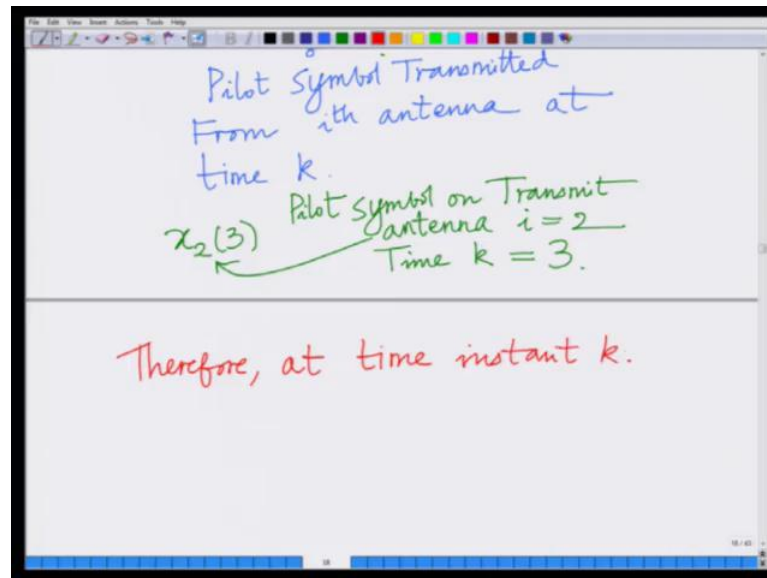 File Edit View Insert Actions Tools Help
Pilot Symbol Transmitted
From ith antenna at
time k.
Pilot symbol on Transmit
x₂(3) antenna i = 2
Time k = 3.
Therefore, at time instant k.
18